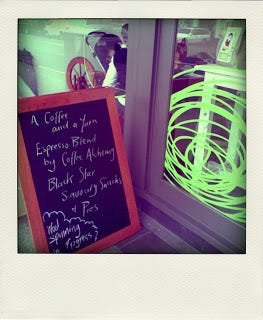 A Coffee
and a Yarn
Espresso Blend
by Coffee Alchemy
Black Star
Savoury Snacks
+ Pies
Wool
Spinning
in Progress